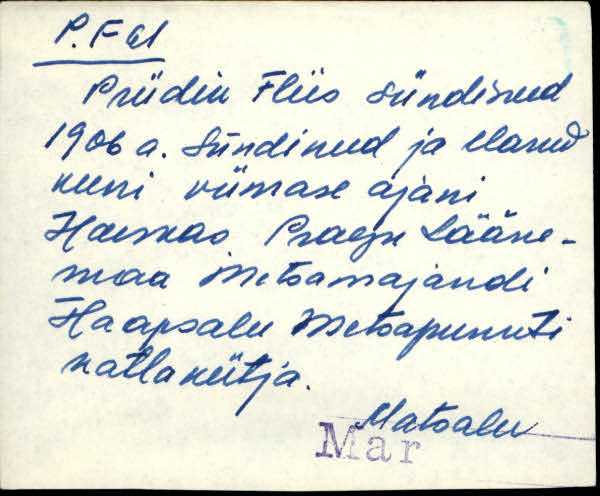 P. Fel
Priidin Fliis sündinud
1906 a. Sündinud ja elanud
kuni viimase ajani
Haeskas Praegu Lääne-
maa Metsamajandi
Haapsalu Metsapunkti
katlakütja.
Matsalu
Mar